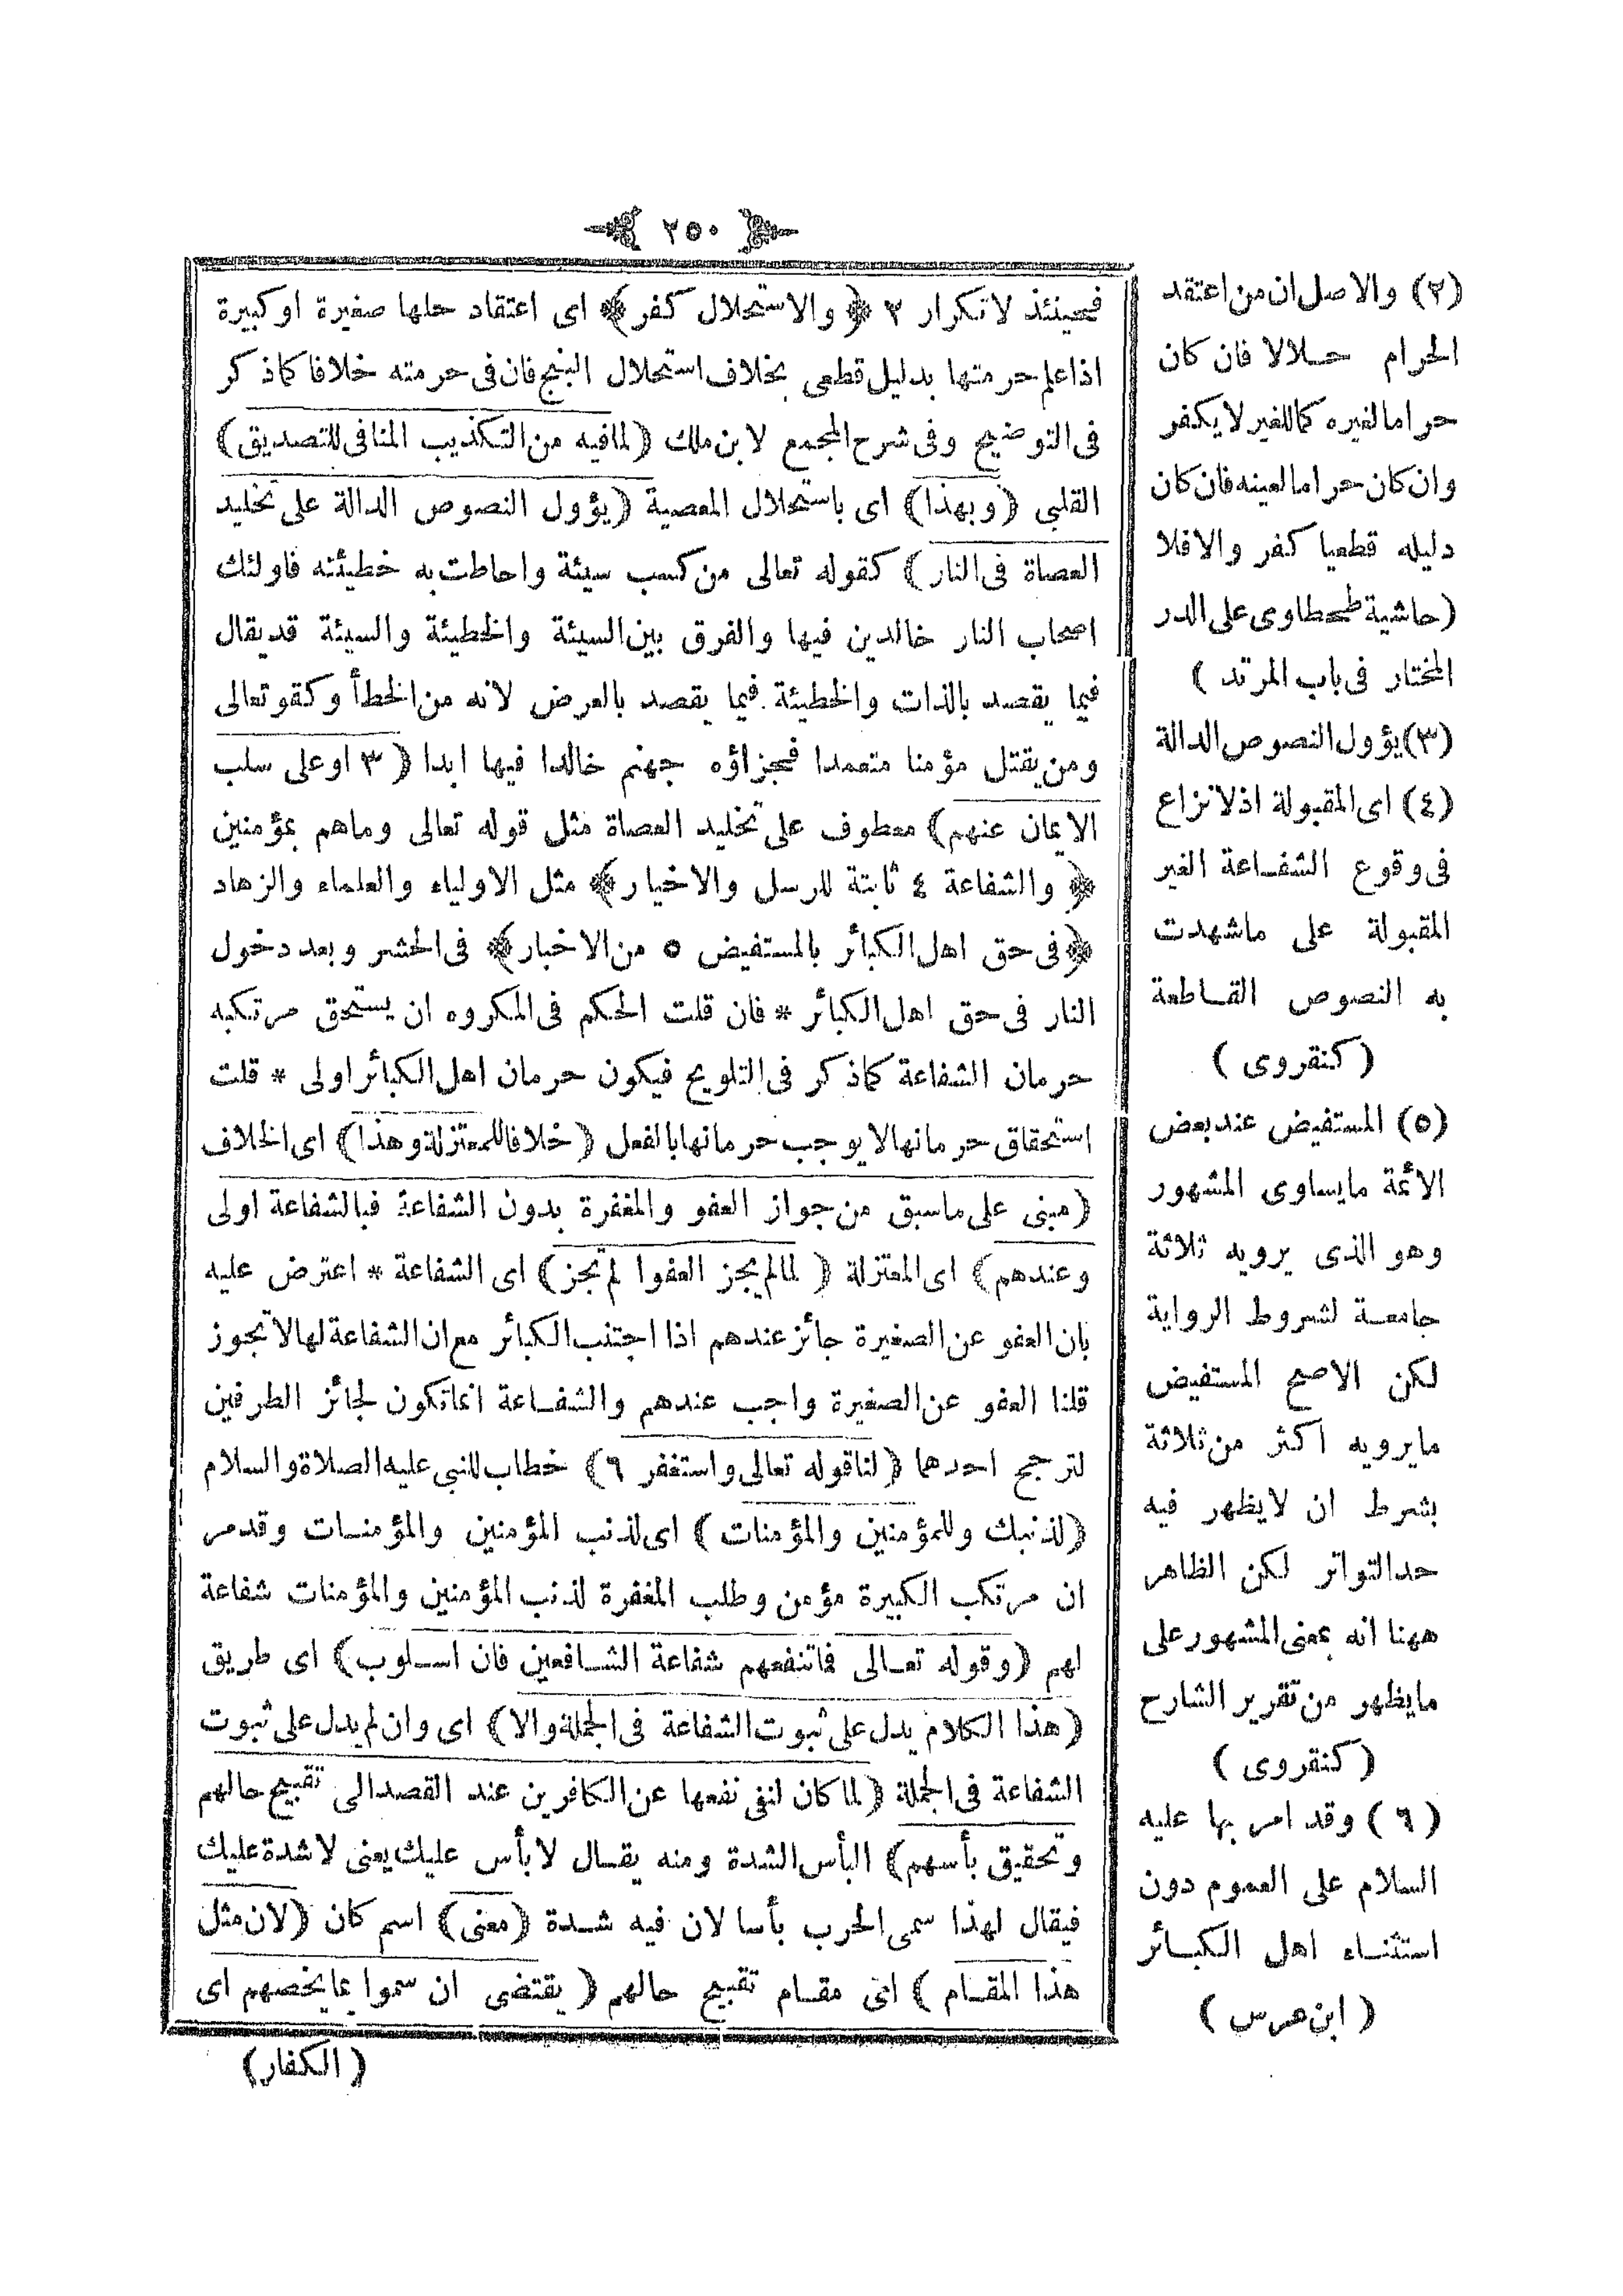 ٢٥٠
فحينئذ لا تكرار ٢ ﴿ والاستحلال كفر ﴾ اى اعتقاد حلها صغيرة اوكبيرة
اذا علم حرمتها بدليل قطعى بخلاف استحلال البنج فان فى حرمته خلافا كما ذكر
فى التوضيح وفى شرح المجمع لابن ملك (لما فيه من التكذيب المنافى للتصديق)
القلبى (وبهذا) اى باستحلال المعصية (يؤول النصوص الدالة على تخليد
العصاة فى النار) كقوله تعالى من كسب سيئة واحاطت به خطيئته فاولئك
اصحاب النار خالدين فيها والفرق بين السيئة والخطيئة والسيئة قد يقال
فيما يقصد بالذات والخطيئة فيما يقصد بالعرض لانه من الخطأ وكقو تعالى
ومن يقتل مؤمنا متعمدا فجزاؤه جهنم خالدا فيها ابدا (٣ او على سلب
الايمان عنهم) معطوف على تخليد العصاة مثل قوله تعالى وماهم بمؤمنين
﴿ والشفاعة ٤ ثابتة للرسل والاخيار ﴾ مثل الاولياء والعلماء والزهاد
﴿ فى حق اهل الكبائر بالمستفيض ٥ من الاخبار ﴾ فى الحشر وبعد دخول
النار فى حق اهل الكبائر * فان قلت الحكم فى المكروه ان يستحق مرتكبه
حرمان الشفاعة كما ذكر فى التلويح فيكون حرمان اهل الكبائر اولى * قلت
استحقاق حرمانها لا يوجب حرمانها بالفعل (خلافا للمعتزلة وهذا) اى الخلاف
(مبنى على ماسبق من جواز العفو والمغفرة بدون الشفاعة فبالشفاعة اولى
وعندهم) اى المعتزلة (لما لم يجز العفوا لم تجز) اى الشفاعة * اعترض عليه
بان العفو عن الصغيرة جائز عندهم اذا اجتنب الكبائر مع ان الشفاعة لها لا تجوز
قلنا العفو عن الصغيرة واجب عندهم والشفاعة انما تكون لجائز الطرفين
لترجح احدهما (لنا قوله تعالى واستغفر ٦) خطاب للنبى عليه الصلاة والسلام
(لذنبك وللمؤمنين والمؤمنات) اى لذنب المؤمنين والمؤمنات وقد مر
ان مرتكب الكبيرة مؤمن وطلب المغفرة لذنب المؤمنين والمؤمنات شفاعة
لهم (وقوله تعالى فاتنفعهم شفاعة الشافعين فان اسلوب) اى طريق
(هذا الكلام يدل على ثبوت الشفاعة فى الجملة والا) اى وان لم يدل على ثبوت
الشفاعة فى الجملة (لما كان لنفى نفعها عن الكافرين عند القصد الى تقبيح حالهم
وتحقيق بأسهم) البأس الشدة ومنه يقال لا بأس عليك يعنى لا شدة عليك
فيقال لهذا سمى الحرب بأسا لان فيه شدة (معنى) اسم كان (لان مثل
هذا المقام) اى مقام تقبيح حالهم (يقتضى ان سموا بما يخصهم اى
(الكفار)
(٢) والاصل ان من اعتقد
الحرام حلالا فان كان
حراما لغيره كما للغير لا يكفر
وان كان حراما لعينه فان كان
دليله قطعيا كفر والا فلا
(حاشية طحطاوى على الدر
المختار فى باب المرتد)
(٣) يؤول النصوص الدالة
(٤) اى المقبولة اذ لا نزاع
فى وقوع الشفاعة الغير
المقبولة على ماشهدت
به النصوص القاطعة
(كنقروى)
(٥) المستفيض عند بعض
الائمة مايساوى المشهور
وهو الذى يرويه ثلاثة
جامعة لشروط الرواية
لكن الاصح المستفيض
مايرويه اكثر من ثلاثة
بشرط ان لا يظهر فيه
حد التواتر لكن الظاهر
ههنا انه بمعنى المشهور على
مايظهر من تقرير الشارح
(كنقروى)
(٦) وقد امر بها عليه
السلام على العموم دون
استثناء اهل الكبائر
(ابن عرس)